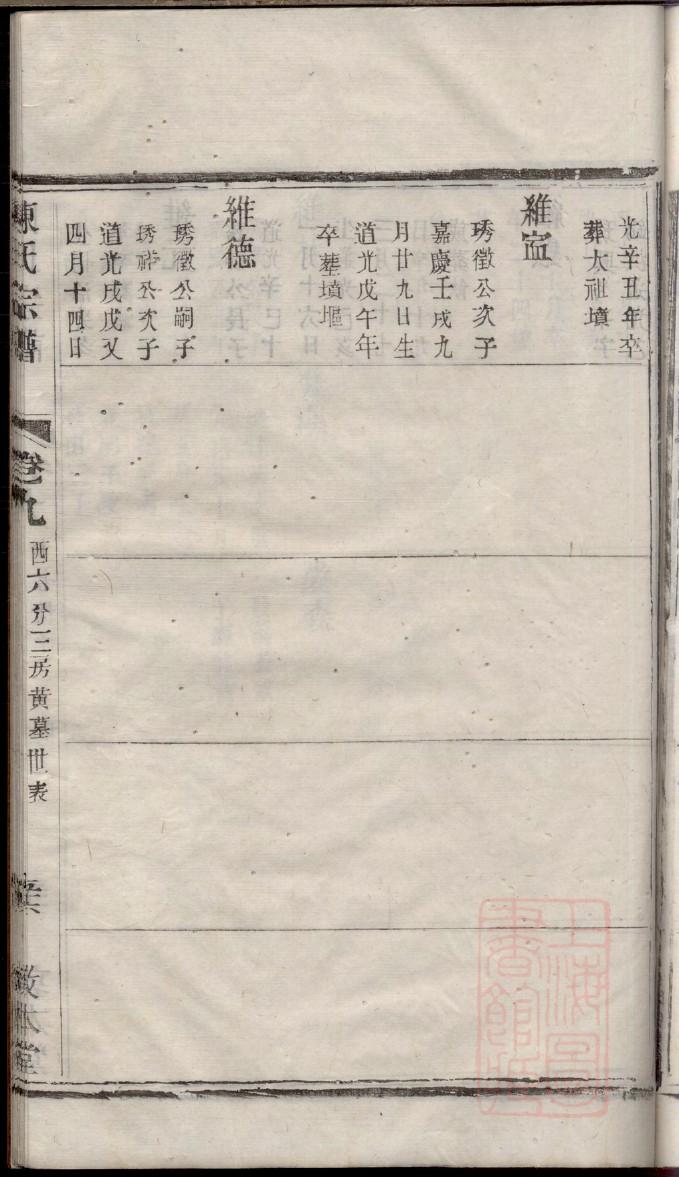 光辛丑年卒
葬太祖墳
維寍
琇徵公次子
嘉慶壬戌九
月廿九日生
道光戊午年
卒葬墳堰
維德
琇徵公嗣子
琇祥公次子
道光戌戌又
四月十四日
陳氏宗譜
卷九
西六分三房黃墓世表
敦本堂
上海圖書館藏